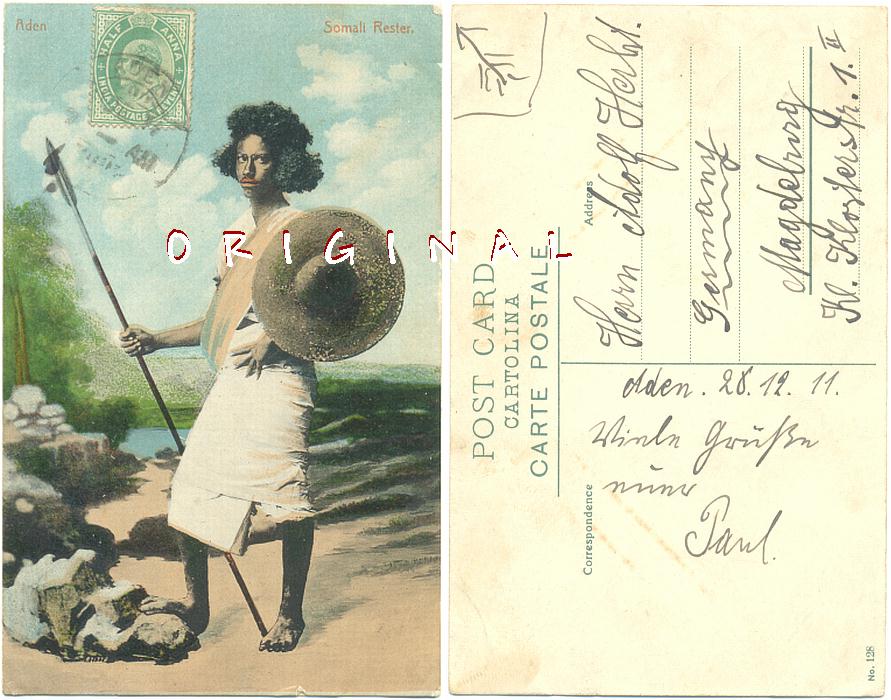 Aden
Somali Rester.
HALF ANNA
INDIA POSTAGE & REVENUE
ADEN
AM
O R I G I N A L
POST CARD
CARTOLINA
CARTE POSTALE
Address
Herrn Adolf Herbst.
Germany
Magdeburg
Kl. Klosterstr. 1. II
Aden. 28.12.11.
Viele Grüße
euer
Paul.
Correspondence
No. 128